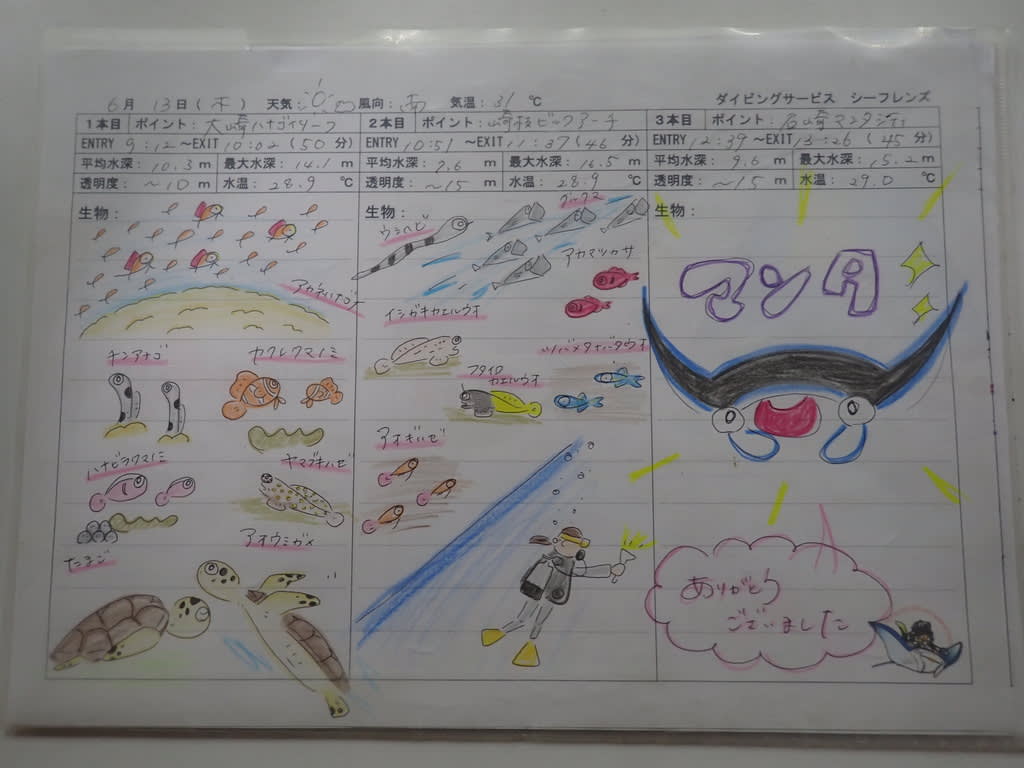 6月 13日(木) 天気: 風向: 南 気温: 31 ℃
ダイビングサービス シーフレンズ
1本目 ポイント: 大崎ハナゴイリーフ
ENTRY 9:12 ~EXIT 10:02 (50 分)
平均水深: 10.3 m 最大水深: 14.1 m
透明度: ~10 m 水温: 28.9 ℃
生物:
アカネハナゴイ
チンアナゴ
カクレクマノミ
ハナビラクマノミ
ヤマブキハゼ
たまご
アオウミガメ
2本目 ポイント: 崎枝ビッグアーチ
ENTRY 10:51 ~EXIT 11:37 (46 分)
平均水深: 7.6 m 最大水深: 16.5 m
透明度: ~15 m 水温: 28.9 ℃
生物:
ウミヘビ
アカマツカサ
イシガキカエルウオ
フタイロ
カエルウオ
アオギハゼ
3本目 ポイント: 石崎マンタ
ENTRY 12:39 ~EXIT 13:26 (45 分)
平均水深: 9.6 m 最大水深: 15.2 m
透明度: ~15 m 水温: 29.0 ℃
生物:
マンタ
ありがとう
ございました